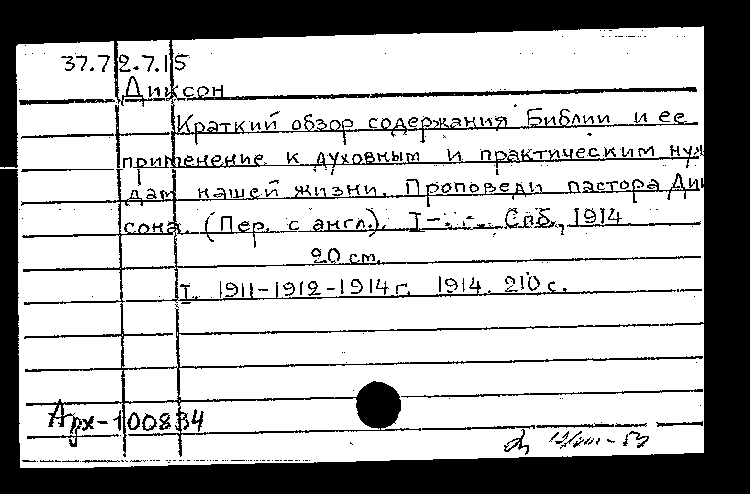 37.72.7.15
Диксон
Краткий обзор содержания Библии и ее
применение к духовным и практическим нуж
дам нашей жизни. Проповеди пастора Дик
сона. (Пер. с англ.). I-. Спб., 1914
20 cm.
I. 1911-1912-1914 г. 1914. 210 с.
Арх-100834